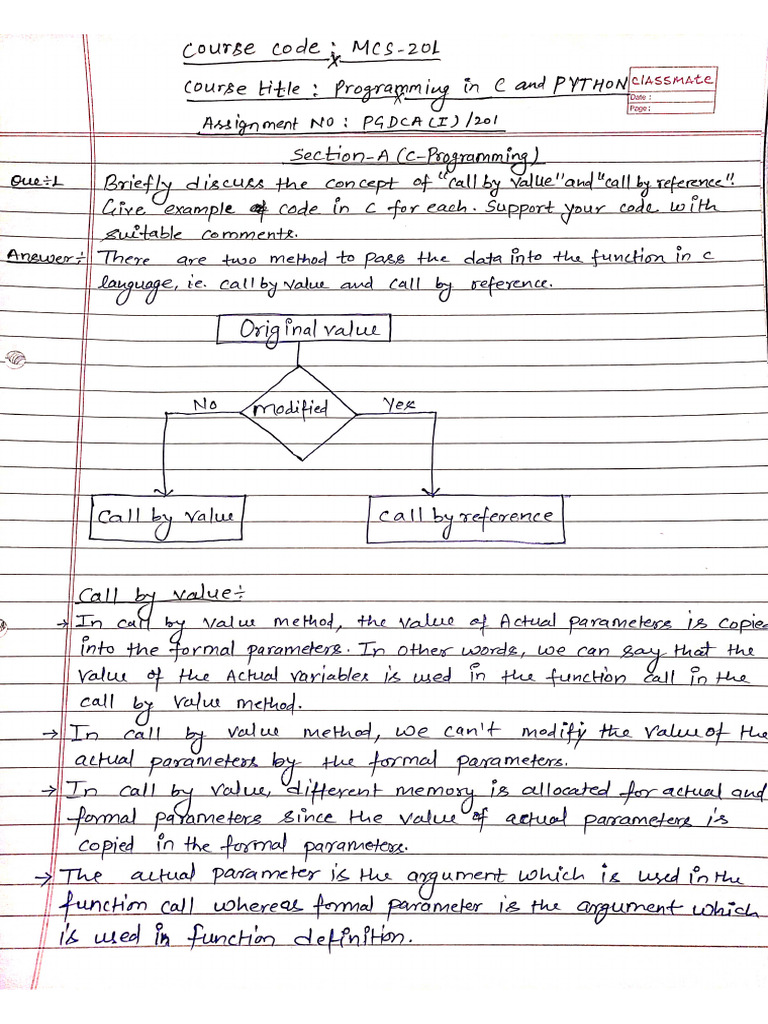 Course code : MCS-201
Course title : Programming in C and PYTHON
CLASSMATE
Date :
Page :
Assignment NO : PGDCA(I)/201
Section-A (C-Programming)
Que÷1 Briefly discuss the concept of "call by value" and "call by reference".
Give example of code in C for each. Support your code with
suitable comments.
Answer÷ There are two method to pass the data into the function in c
language, ie. call by value and call by reference.
Original value
No
modified
Yes
Call by value
Call by reference
Call by value÷
→ In call by value method, the value of Actual parameters is copied
into the formal parameters. In other words, we can say that the
value of the Actual variables is used in the function call in the
call by value method.
→ In call by value method, we can't modify the value of the
actual parameters by the formal parameters.
→ In call by value, different memory is allocated for actual and
formal parameters since the value of actual parameters is
copied in the formal parameters.
→ The actual parameter is the argument which is used in the
function call whereas formal parameter is the argument which
is used in function definition.